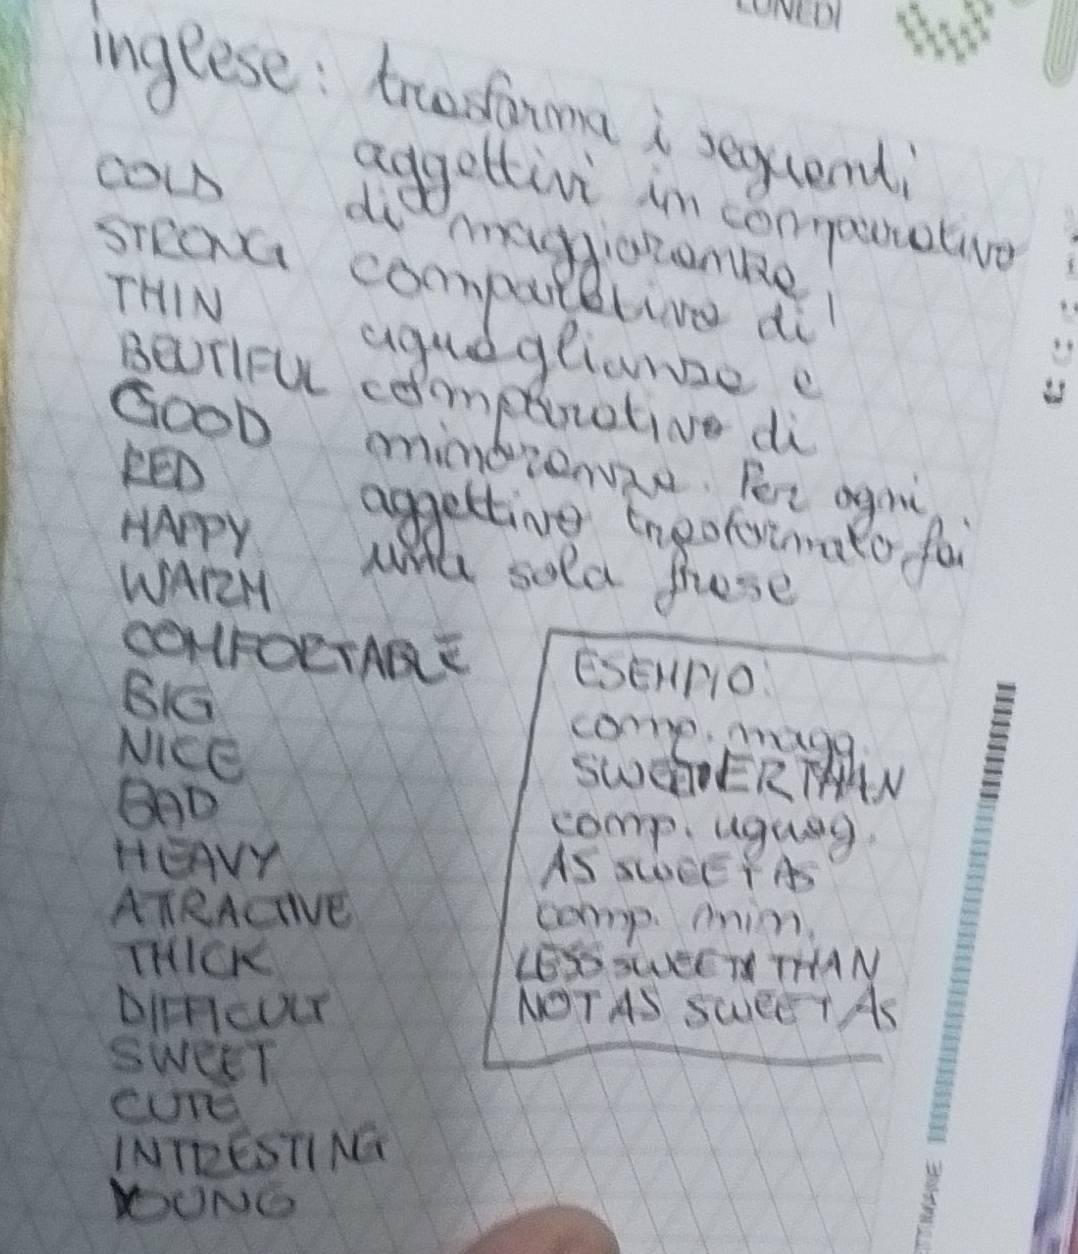 LUNEDI
inglese: trasforma i seguenti
aggettivi in comparativo
di maggioranza
comparativo di
uguaglianza e
comparativo di
minoranza. Per ogni
aggettivo trasformato fai
una sola frase
COLD
STRONG
THIN
BEUTIFUL
GOOD
RED
HAPPY
WARM
COMFORTABLE
BIG
NICE
BAD
HEAVY
ATTRACTIVE
THICK
DIFFICULT
SWEET
CUTE
INTRESTING
YOUNG
ESEMPIO:
comp. magg.
SWEETER THAN
comp. uguag.
AS SWEET AS
comp. min.
LESS SWEET THAN
NOT AS SWEET AS